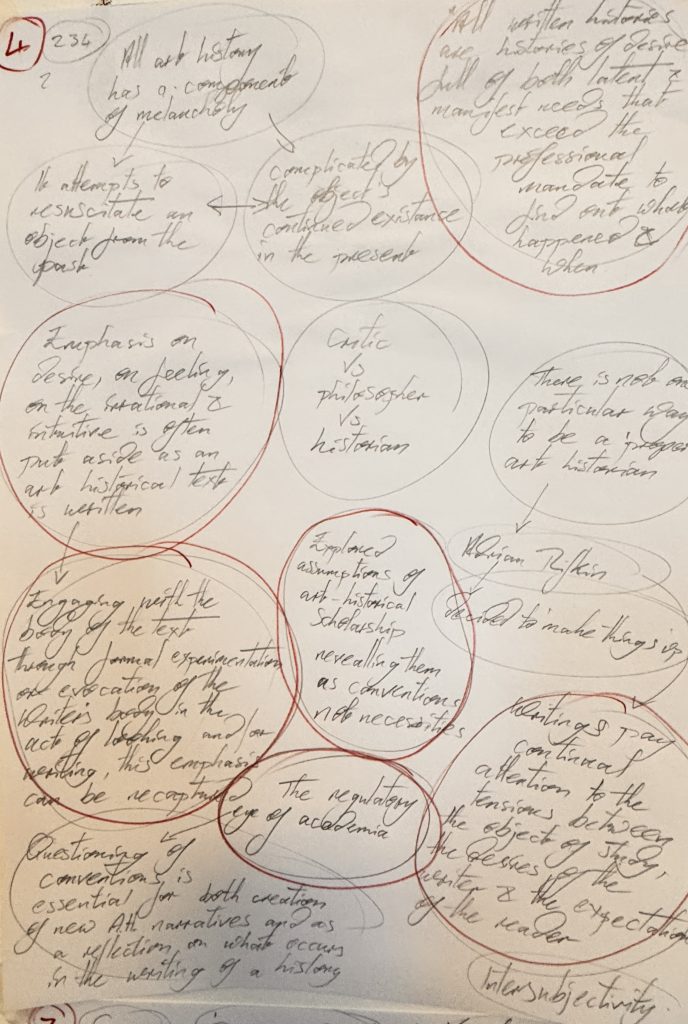 4
234
?
All art history
has a component
of melancholy
All written histories
are histories of desire
full of both latent &
manifest needs that
exceed the
professional
mandate to
find out what
happened &
when
It attempts to
resuscitate an
object from the
past
complicated by
the object's
continued existance
in the present
Emphasis on
desire, on feeling,
on the irrational &
intuitive is often
put aside as an
art historical text
is written
Critic
vs
philosopher
vs
historian
There is not one
particular way
to be a proper
art historian
Adrian Rifkin
decided to make things up
Engaging with the
body of the text
through formal experimentation
or evocation of the
writer's body in the
act of looking and/or
writing, this emphasis
can be recaptured
Explored
assumptions of
art-historical
scholarship
revealing them
as conventions
not necessities
Writings pay
continual
attention to the
tensions between
the object of study,
the desires of the
writer & the expectation
of the reader
The regulatory
eye of academia
Questioning of
conventions is
essential for both creation
of new A.H. narratives and as
a reflection on what occurs
in the writing of a history
Intersubjectivity